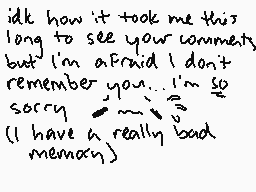 idk how it took me this
long to see your comments
but I'm afraid I don't
remember you... I'm so
sorry
(I have a really bad
memory)